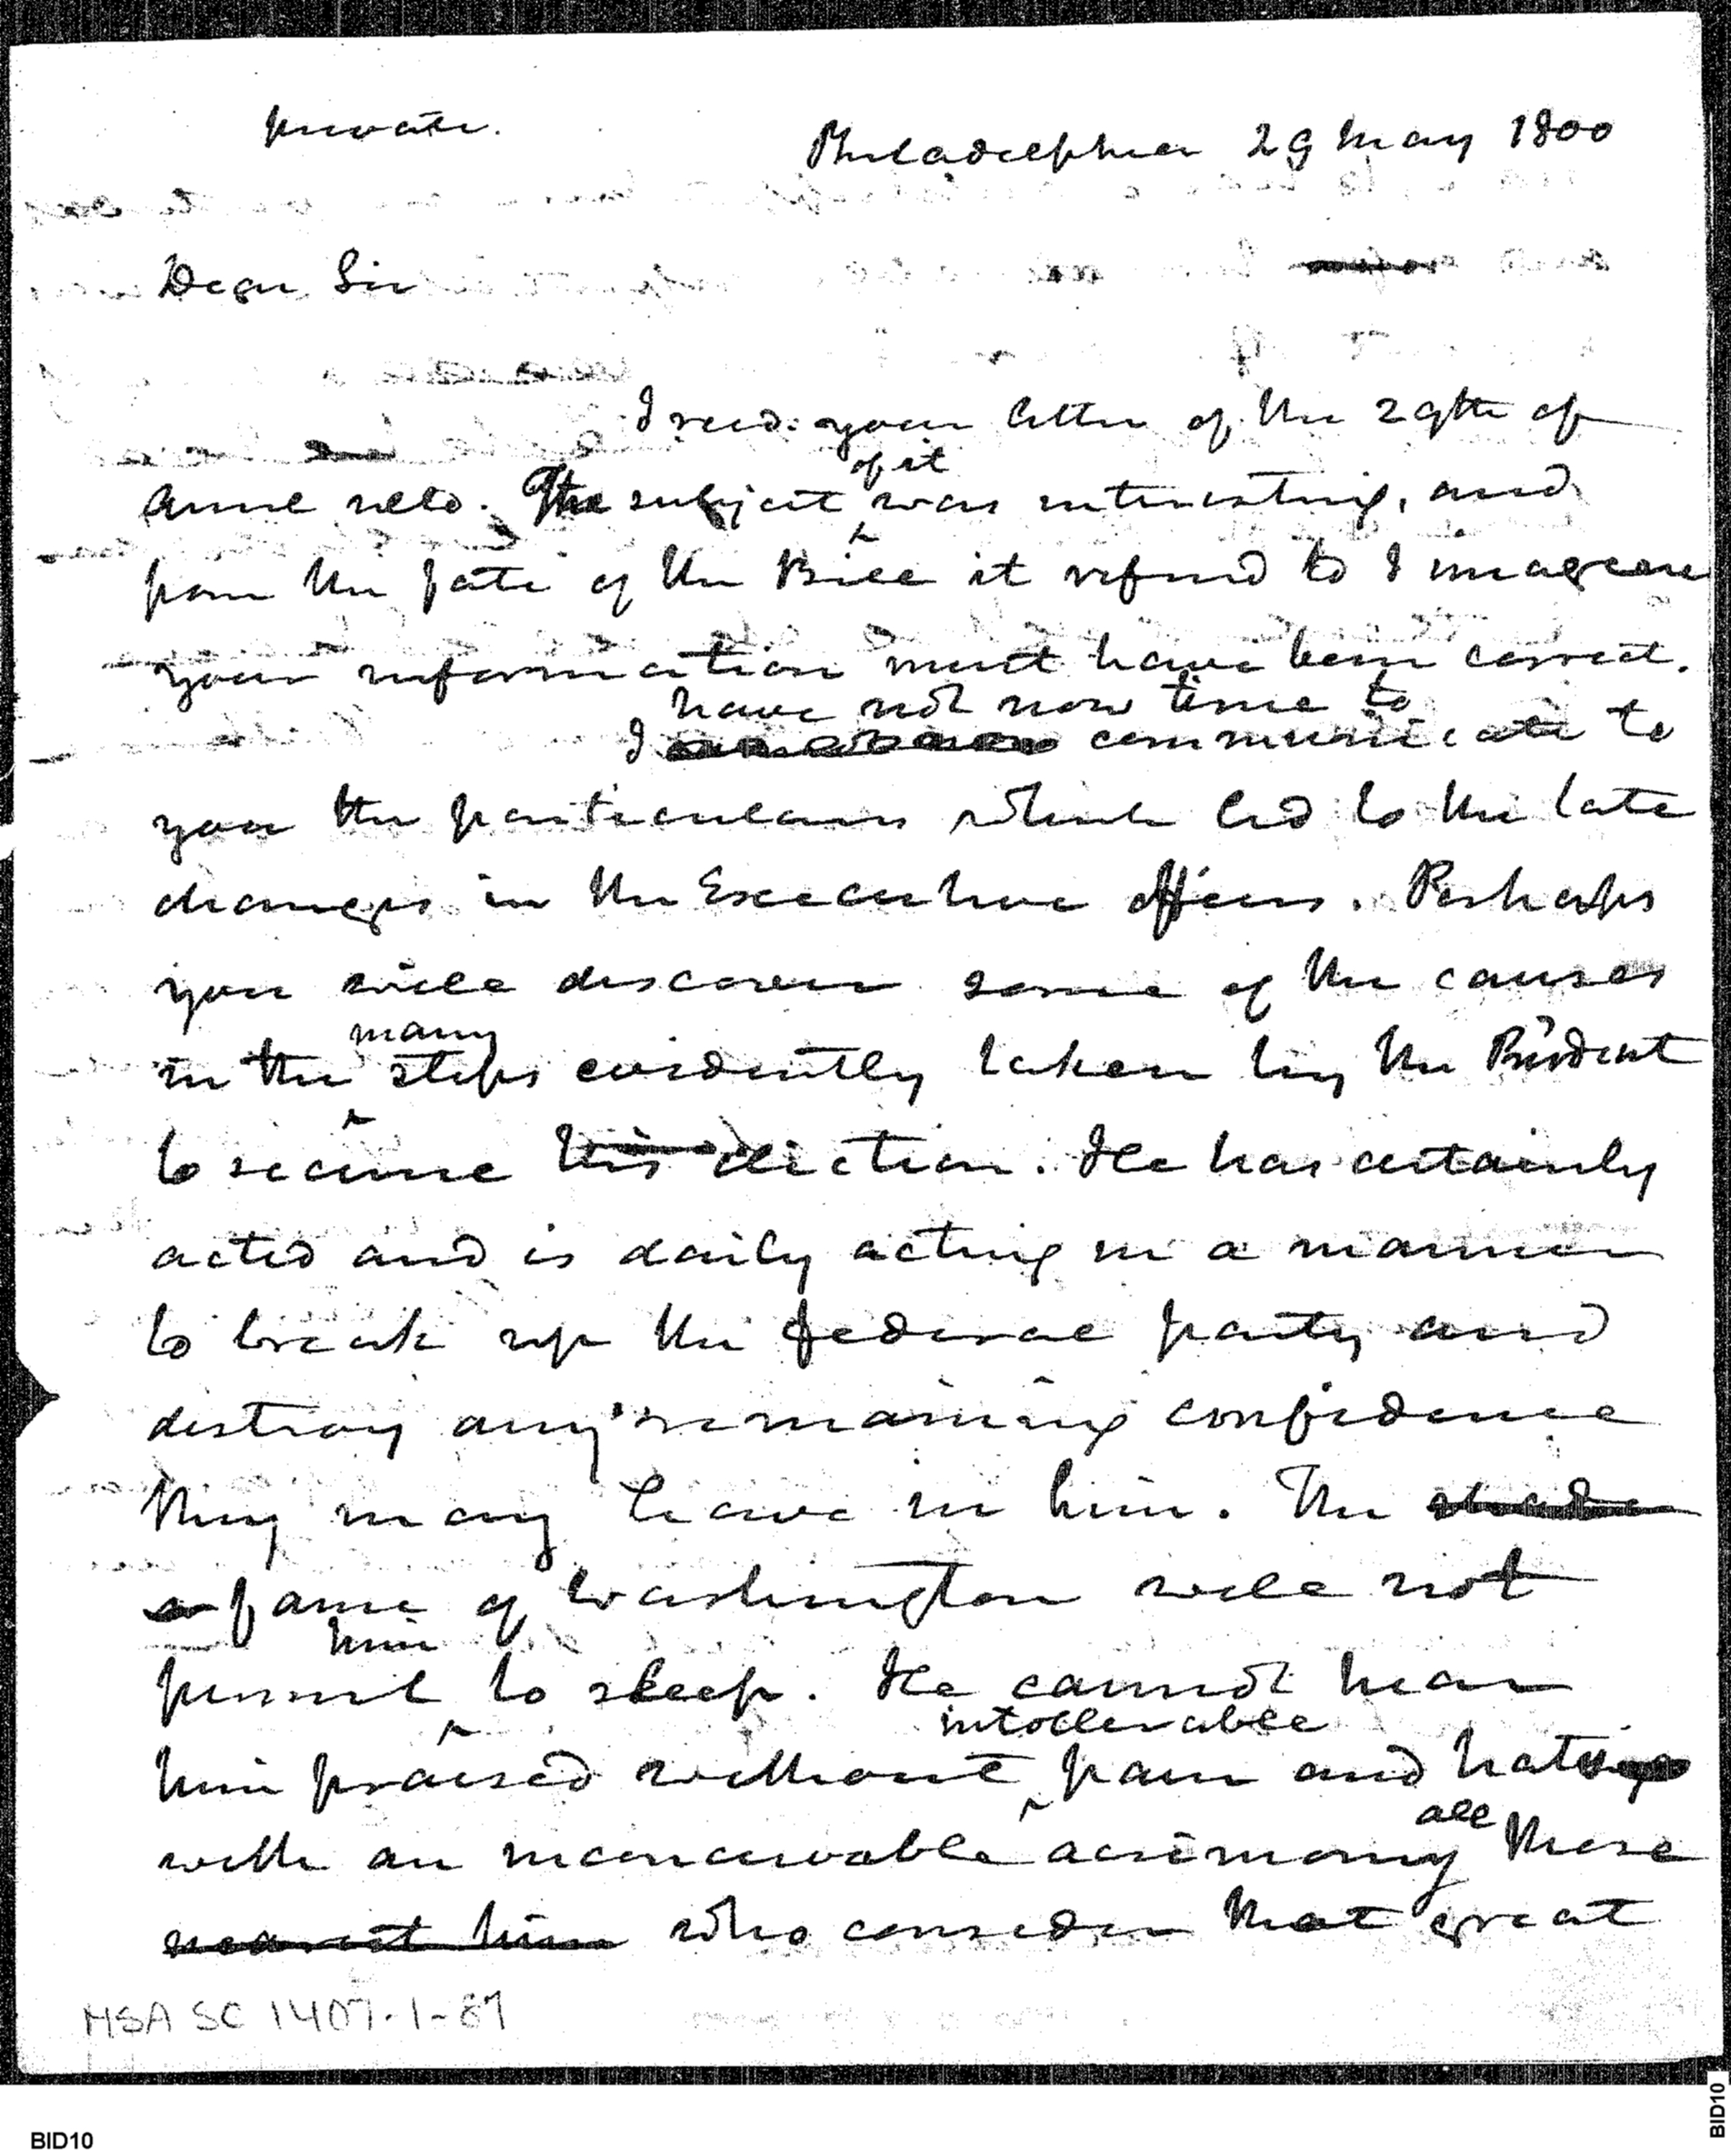 private.
Philadelphia 29 May 1800
Dear Sir
I recd. your letter of the 29th of
of it
April ulto. The subject was interesting, and
from the fate of the Bill it referred to I imagine
your information must have been correct.
have not now time to
I communicate to
you the particulars which led to the late
changes in the Executive officers. Perhaps
you will discover some of the causes
many
in the steps evidently taken by the Presdent
to secure his election. He has certainly
acted and is daily acting in a manner
to break up the federal party and
destroy any remaining confidence
they may have in him. The
fame of Washington will not
him
permit to sleep. He cannot hear
intollerable
him praised without pain and hates
all
with an inconceivable acrimony those
nearest him who consider that great
MSA SC 1407-1-87
BID10
BID10